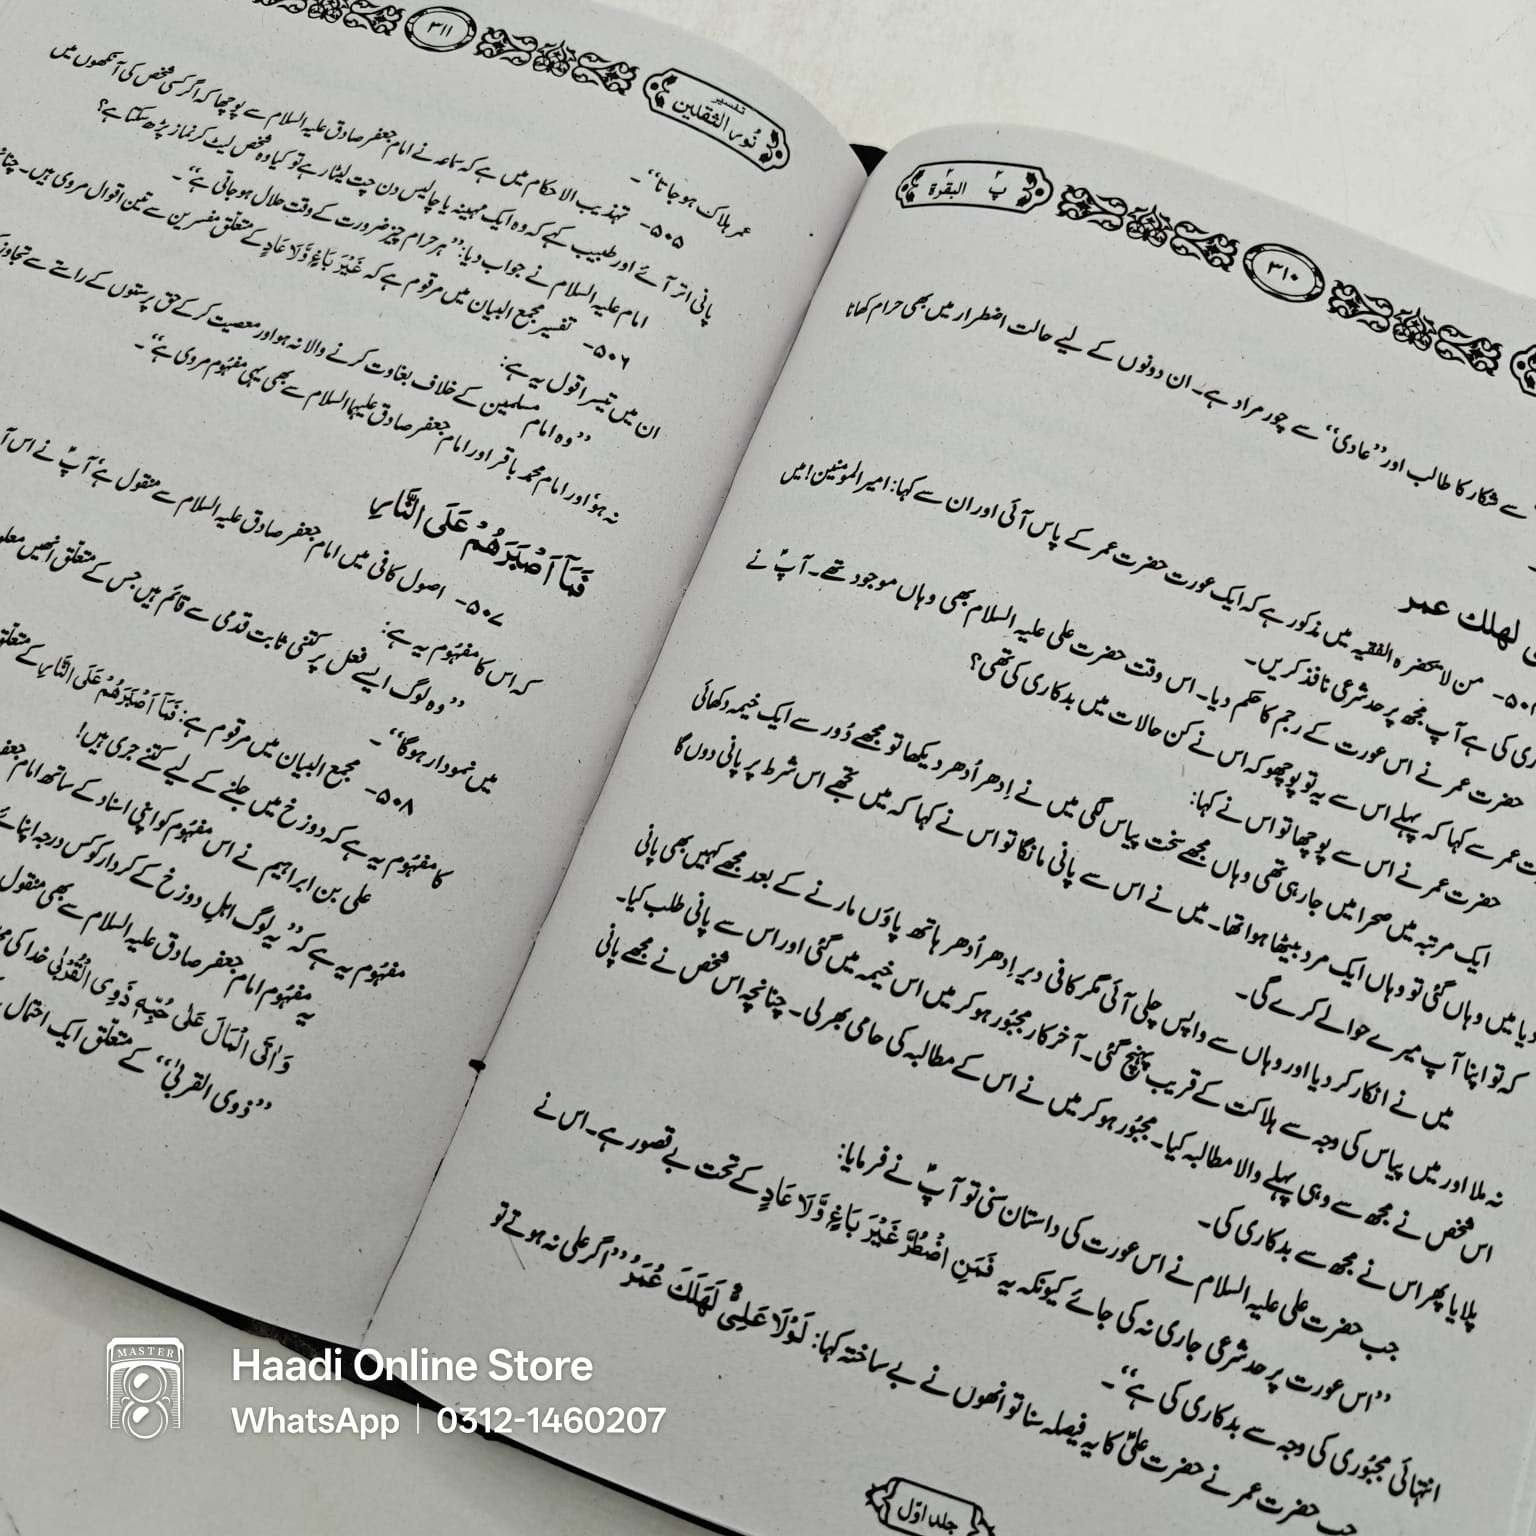 پ ٢ البقرة
٣١٠
سے شکار کا طالب اور ”عادی“ سے چور مراد ہے۔ ان دونوں کے لیے حالت اضطرار میں بھی حرام کھانا
لھلك عمر
من لا یحضرہ الفقیہ میں مذکور ہے کہ ایک عورت حضرت عمر کے پاس آئی اور ان سے کہا: امیرالمومنین! میں
کی ہے آپ مجھ پر حد شرعی نافذ کریں۔
حضرت عمر نے اس عورت کے رجم کا حکم دیا۔ اس وقت حضرت علی علیہ السلام بھی وہاں موجود تھے۔ آپؑ نے
عمر سے کہا کہ پہلے اس سے یہ تو پوچھو کہ اس نے کن حالات میں بدکاری کی تھی؟
حضرت عمر نے اس سے پوچھا تو اس نے کہا:
ایک مرتبہ میں صحرا میں جا رہی تھی وہاں مجھے سخت پیاس لگی میں نے اِدھر اُدھر دیکھا تو مجھے دُور سے ایک خیمہ دکھائی
دیا میں وہاں گئی تو وہاں ایک مرد بیٹھا ہوا تھا۔ میں نے اس سے پانی مانگا تو اس نے کہا کہ میں تجھے اس شرط پر پانی دوں گا
کہ تو اپنا آپ میرے حوالے کرے گی۔
میں نے انکار کر دیا اور وہاں سے واپس چلی آئی مگر کافی دیر اِدھر اُدھر ہاتھ پاؤں مارنے کے بعد مجھے کہیں بھی پانی
نہ ملا اور میں پیاس کی وجہ سے ہلاکت کے قریب پہنچ گئی۔ آخرکار مجبُور ہو کر میں اس خیمہ میں گئی اور اس سے پانی طلب کیا۔
اس شخص نے مجھ سے وہی پہلے والا مطالبہ کیا۔ مجبُور ہو کر میں نے اس کے مطالبہ کی حامی بھر لی۔ چنانچہ اس شخص نے مجھے پانی
پلایا پھر اس نے مجھ سے بدکاری کی۔
جب حضرت علی علیہ السلام نے اس عورت کی داستان سنی تو آپؑ نے فرمایا:
”اس عورت پر حد شرعی جاری نہ کی جائے کیونکہ یہ فَمَنِ اضْطُرَّ غَيْرَ بَاغٍ وَّلَا عَادٍ کے تحت بے قصور ہے۔ اس نے
انتہائی مجبُوری کی وجہ سے بدکاری کی ہے“۔
جب حضرت عمر نے حضرت علیؑ کا یہ فیصلہ سنا تو انھوں نے بے ساختہ کہا: لَوْلَا عَلِیٌّ لَهَلَكَ عُمَرُ ”اگر علی نہ ہوتے تو
جلد اوّل
تفسیر
نُورالثقلین
٣١١
عمر ہلاک ہو جاتا“۔
۵۰۵۔ تہذیب الاحکام میں ہے کہ سماعہ نے امام جعفر صادق علیہ السلام سے پوچھا کہ اگر کسی شخص کی آنکھوں میں
پانی اتر آئے اور طبیب کہے کہ وہ ایک مہینہ یا چالیس دن چت لیٹا رہے تو کیا وہ شخص لیٹ کر نماز پڑھ سکتا ہے؟
امام علیہ السلام نے جواب دیا: ”ہر حرام چیز ضرورت کے وقت حلال ہو جاتی ہے“۔
۵۰۶۔ تفسیر مجمع البیان میں مرقوم ہے کہ غَيْرَ بَاغٍ وَّلَا عَادٍ کے متعلق مفسرین سے تین اقوال مروی ہیں۔
ان میں تیسرا قول یہ ہے:
”وہ امام مسلمین کے خلاف بغاوت کرنے والا نہ ہو اور معصیت کر کے حق پرستوں کے راستے سے تجاوز
نہ ہو اور امام محمد باقر اور امام جعفر صادق علیہما السلام سے بھی یہی مفہُوم مروی ہے“۔
فَمَآ اَصْبَرَهُمْ عَلَى النَّارِ
۵۰۷۔ اصول کافی میں امام جعفر صادق علیہ السلام سے منقول ہے آپؑ نے اس
کہ اس کا مفہُوم یہ ہے:
”وہ لوگ ایسے فعل پر کتنی ثابت قدمی سے قائم ہیں جس کے متعلق انھیں
میں نمودار ہوگا“۔
۵۰۸۔ مجمع البیان میں مرقوم ہے: فَمَآ اَصْبَرَهُمْ عَلَى النَّارِ کے متعلق
کا مفہُوم یہ ہے کہ دوزخ میں جلنے کے لیے کتنے جری ہیں!
علی بن ابراہیم نے اس مفہُوم کو اپنی اسناد کے ساتھ امام جعفر
مفہُوم یہ ہے کہ ”یہ لوگ اہلِ دوزخ کے کردار کو کس درجہ اپنائے
یہ مفہُوم امام جعفر صادق علیہ السلام سے بھی منقول
وَاٰتَى الْمَالَ عَلٰى حُبِّهٖ ذَوِى الْقُرْبٰى خدا کی
”ذوی القربیٰ“ کے متعلق ایک احتمال
MASTER
Haadi Online Store
WhatsApp | 0312-1460207